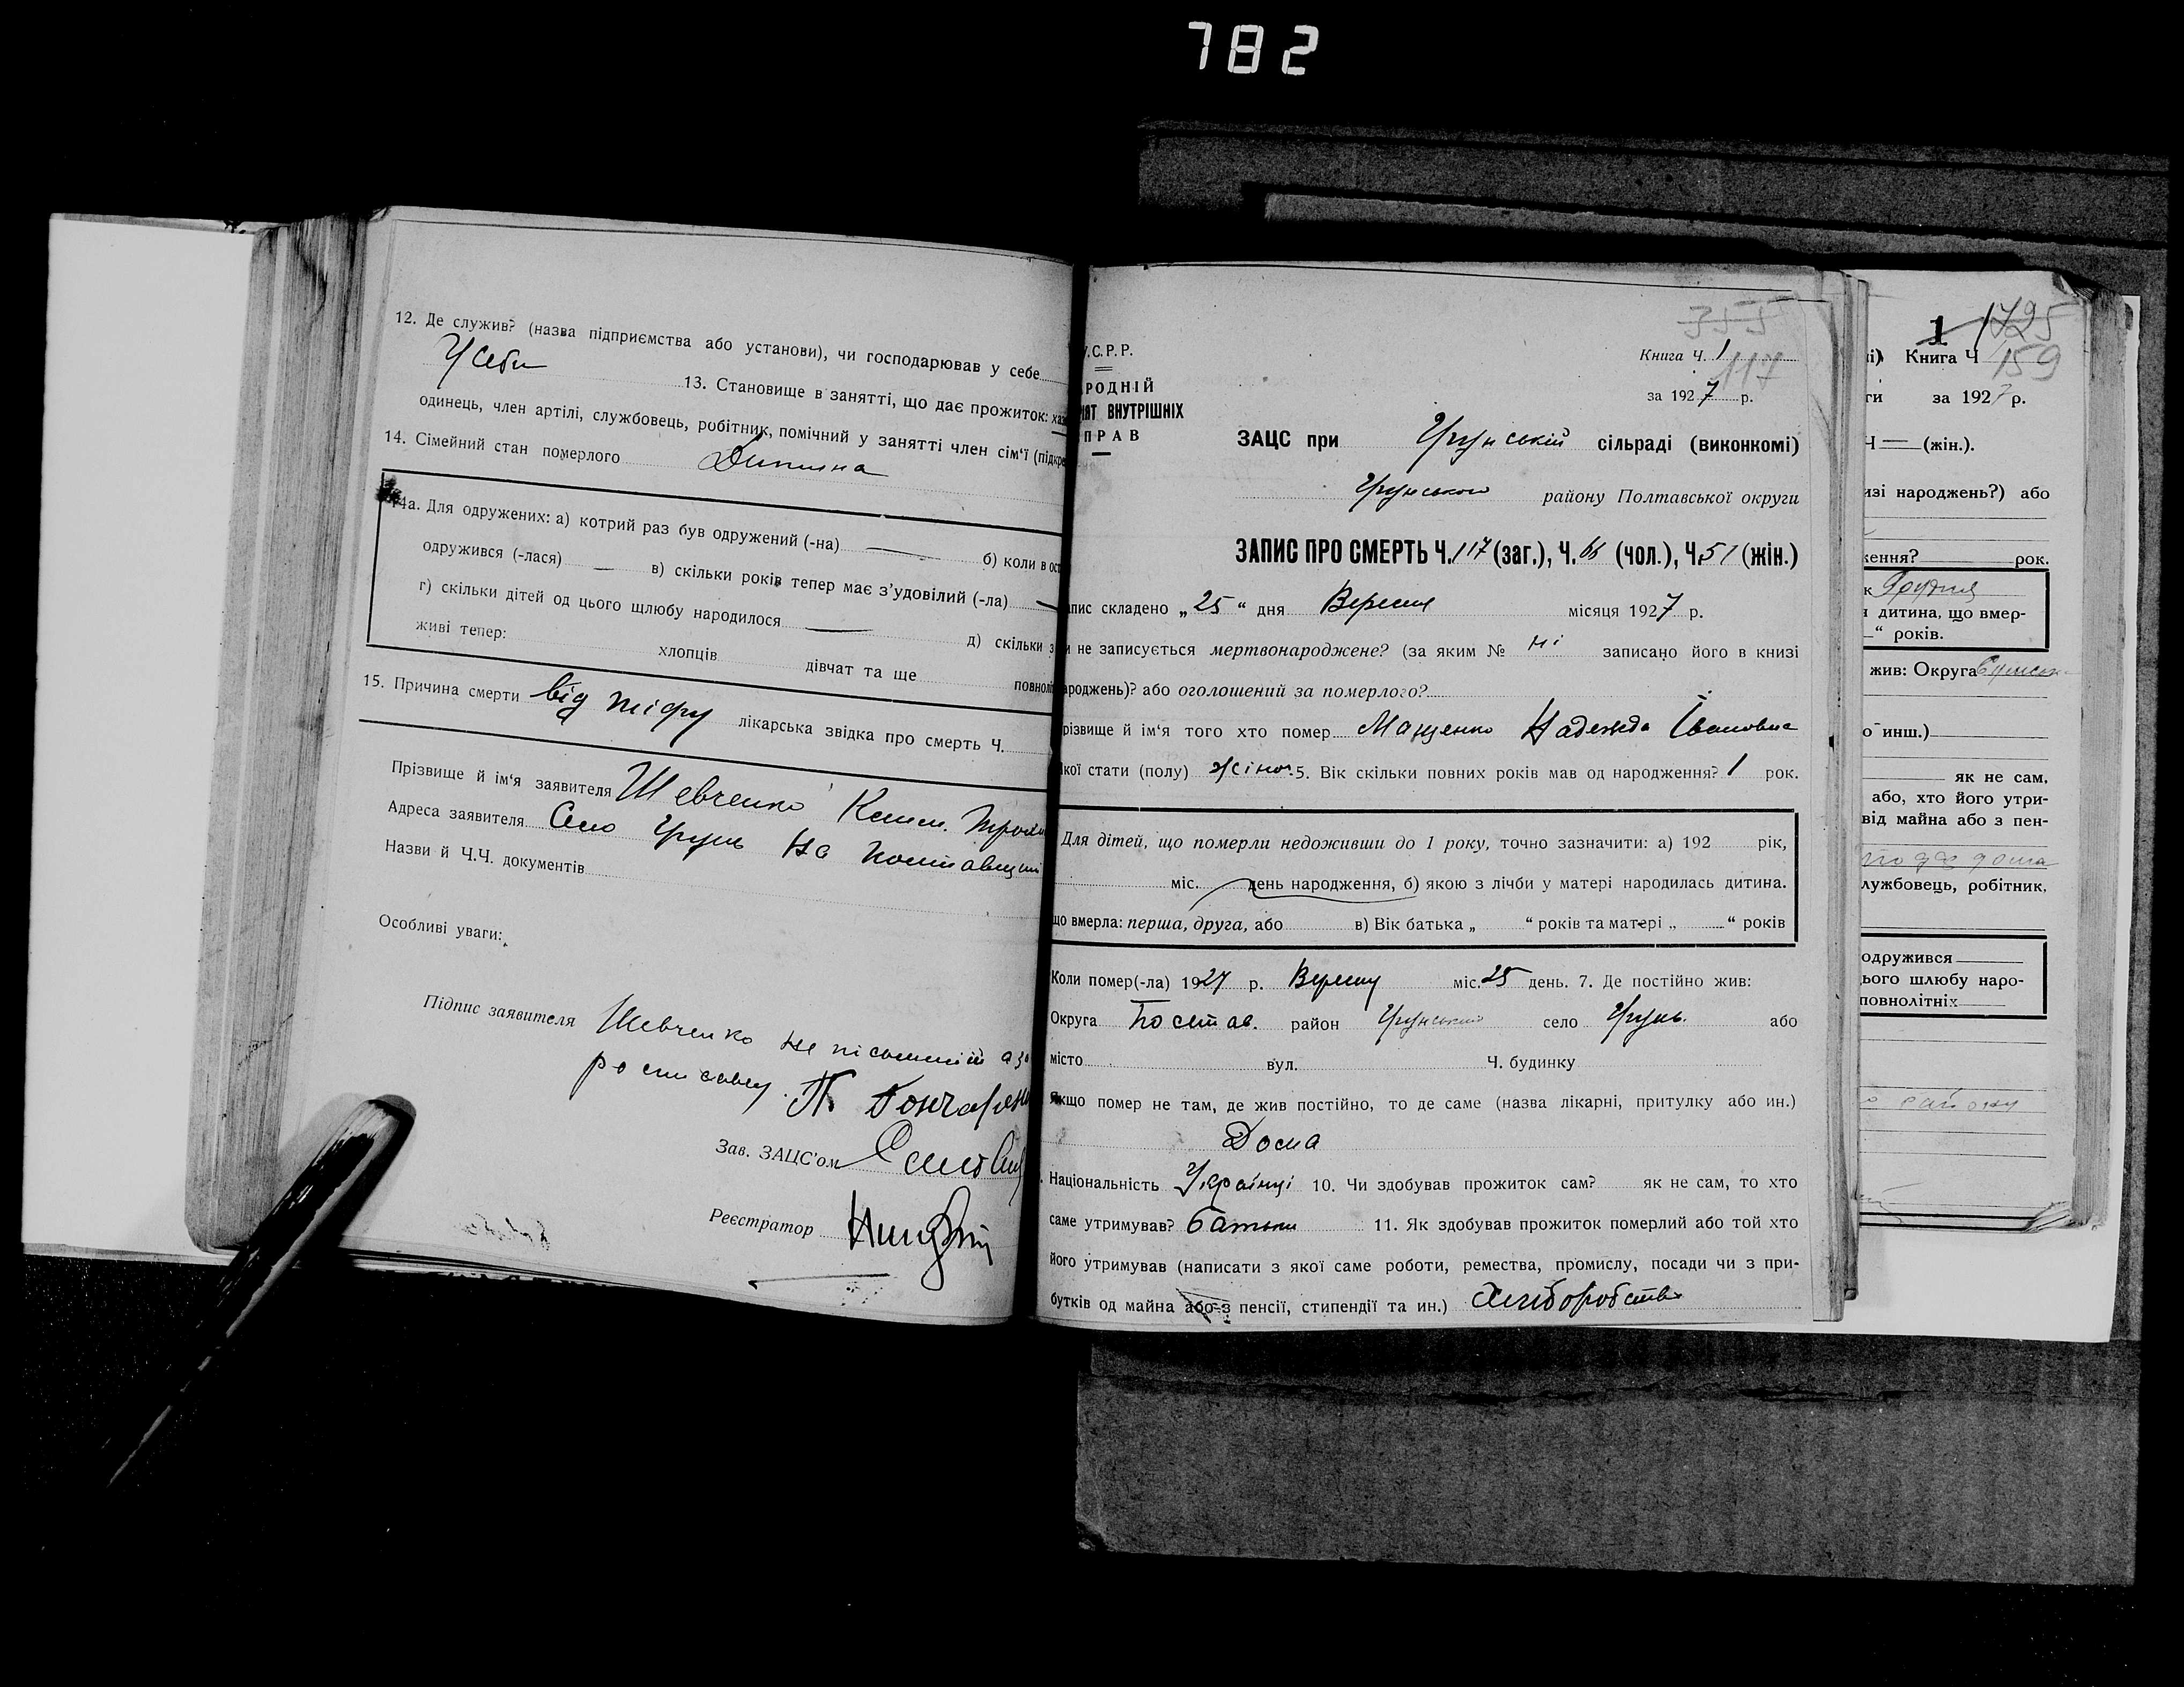 782
12. Де служив? (назва підприємства або установи), чи господарював у себе
У себе
13. Становище в занятті, що дає прожиток:
одинець, член артілі, службовець, робітник, помічний у занятті член сім'ї
14. Сімейний стан померлого Дитина
14а. Для одружених: а) котрий раз був одружений (-на) — б) коли в
одружився (-лася) — в) скільки років тепер має з'удовілий (-ла) —
г) скільки дітей од цього шлюбу народилося — д) скільки з
живі тепер: хлопців дівчат та ще
15. Причина смерти від тифу лікарська звідка про смерть Ч.
Прізвище й ім'я заявителя Шевченко
Адреса заявителя Село Грунь на
Назви й Ч.Ч. документів
Особливі уваги:
Підпис заявителя Шевченко не
П. Гончарен
Зав. ЗАЦС'ом
Реєстратор
У.С.Р.Р.
РОДНІЙ
ІЯТ ВНУТРІШНІХ
ПРАВ
355
Книга Ч. 1
117
за 1927 р.
ЗАЦС при Грунській сільраді (виконкомі)
Грунського району Полтавської округи
ЗАПИС ПРО СМЕРТЬ Ч. 117 (заг.), Ч. 66 (чол.), Ч. 51 (жін.)
апис складено „25“ дня Вересня місяця 1927 р.
и не записується мертвонароджене? (за яким № ні записано його в книзі
ароджень)? або оголошений за померлого?
різвище й ім'я того хто помер Мащенко Надежда Івановна
кої стати (полу) жіноч. 5. Вік скільки повних років мав од народження? 1 рок.
Для дітей, що померли недоживши до 1 року, точно зазначити: а) 192 рік,
міс. день народження, б) якою з лічби у матері народилась дитина.
що вмерла: перша, друга, або в) Вік батька „ “ років та матері „ “ років
Коли помер(-ла) 1927 р. Вересня міс. 25 день. 7. Де постійно жив:
Округа Полтав. район Грунський село Грунь або
місто вул. Ч. будинку
Якщо помер не там, де жив постійно, то де саме (назва лікарні, притулку або ин.)
Дома
Національність Українці 10. Чи здобував прожиток сам? як не сам, то хто
саме утримував? батьки 11. Як здобував прожиток померлий або той хто
його утримував (написати з якої саме роботи, ремества, промислу, посади чи з при-
бутків од майна або з пенсії, стипендії та ин.) Хліборобства
1 1725
Книга Ч 159
за 1927 р.
Ч — (жін.).
изі народжень?) або
ження? рок.
к Грудня
дитина, що вмер-
“ років.
жив: Округа
о инш.)
як не сам,
або, хто його утри-
від майна або з пен-
лужбовець, робітник,
одружився
ього шлюбу наро-
повнолітніх